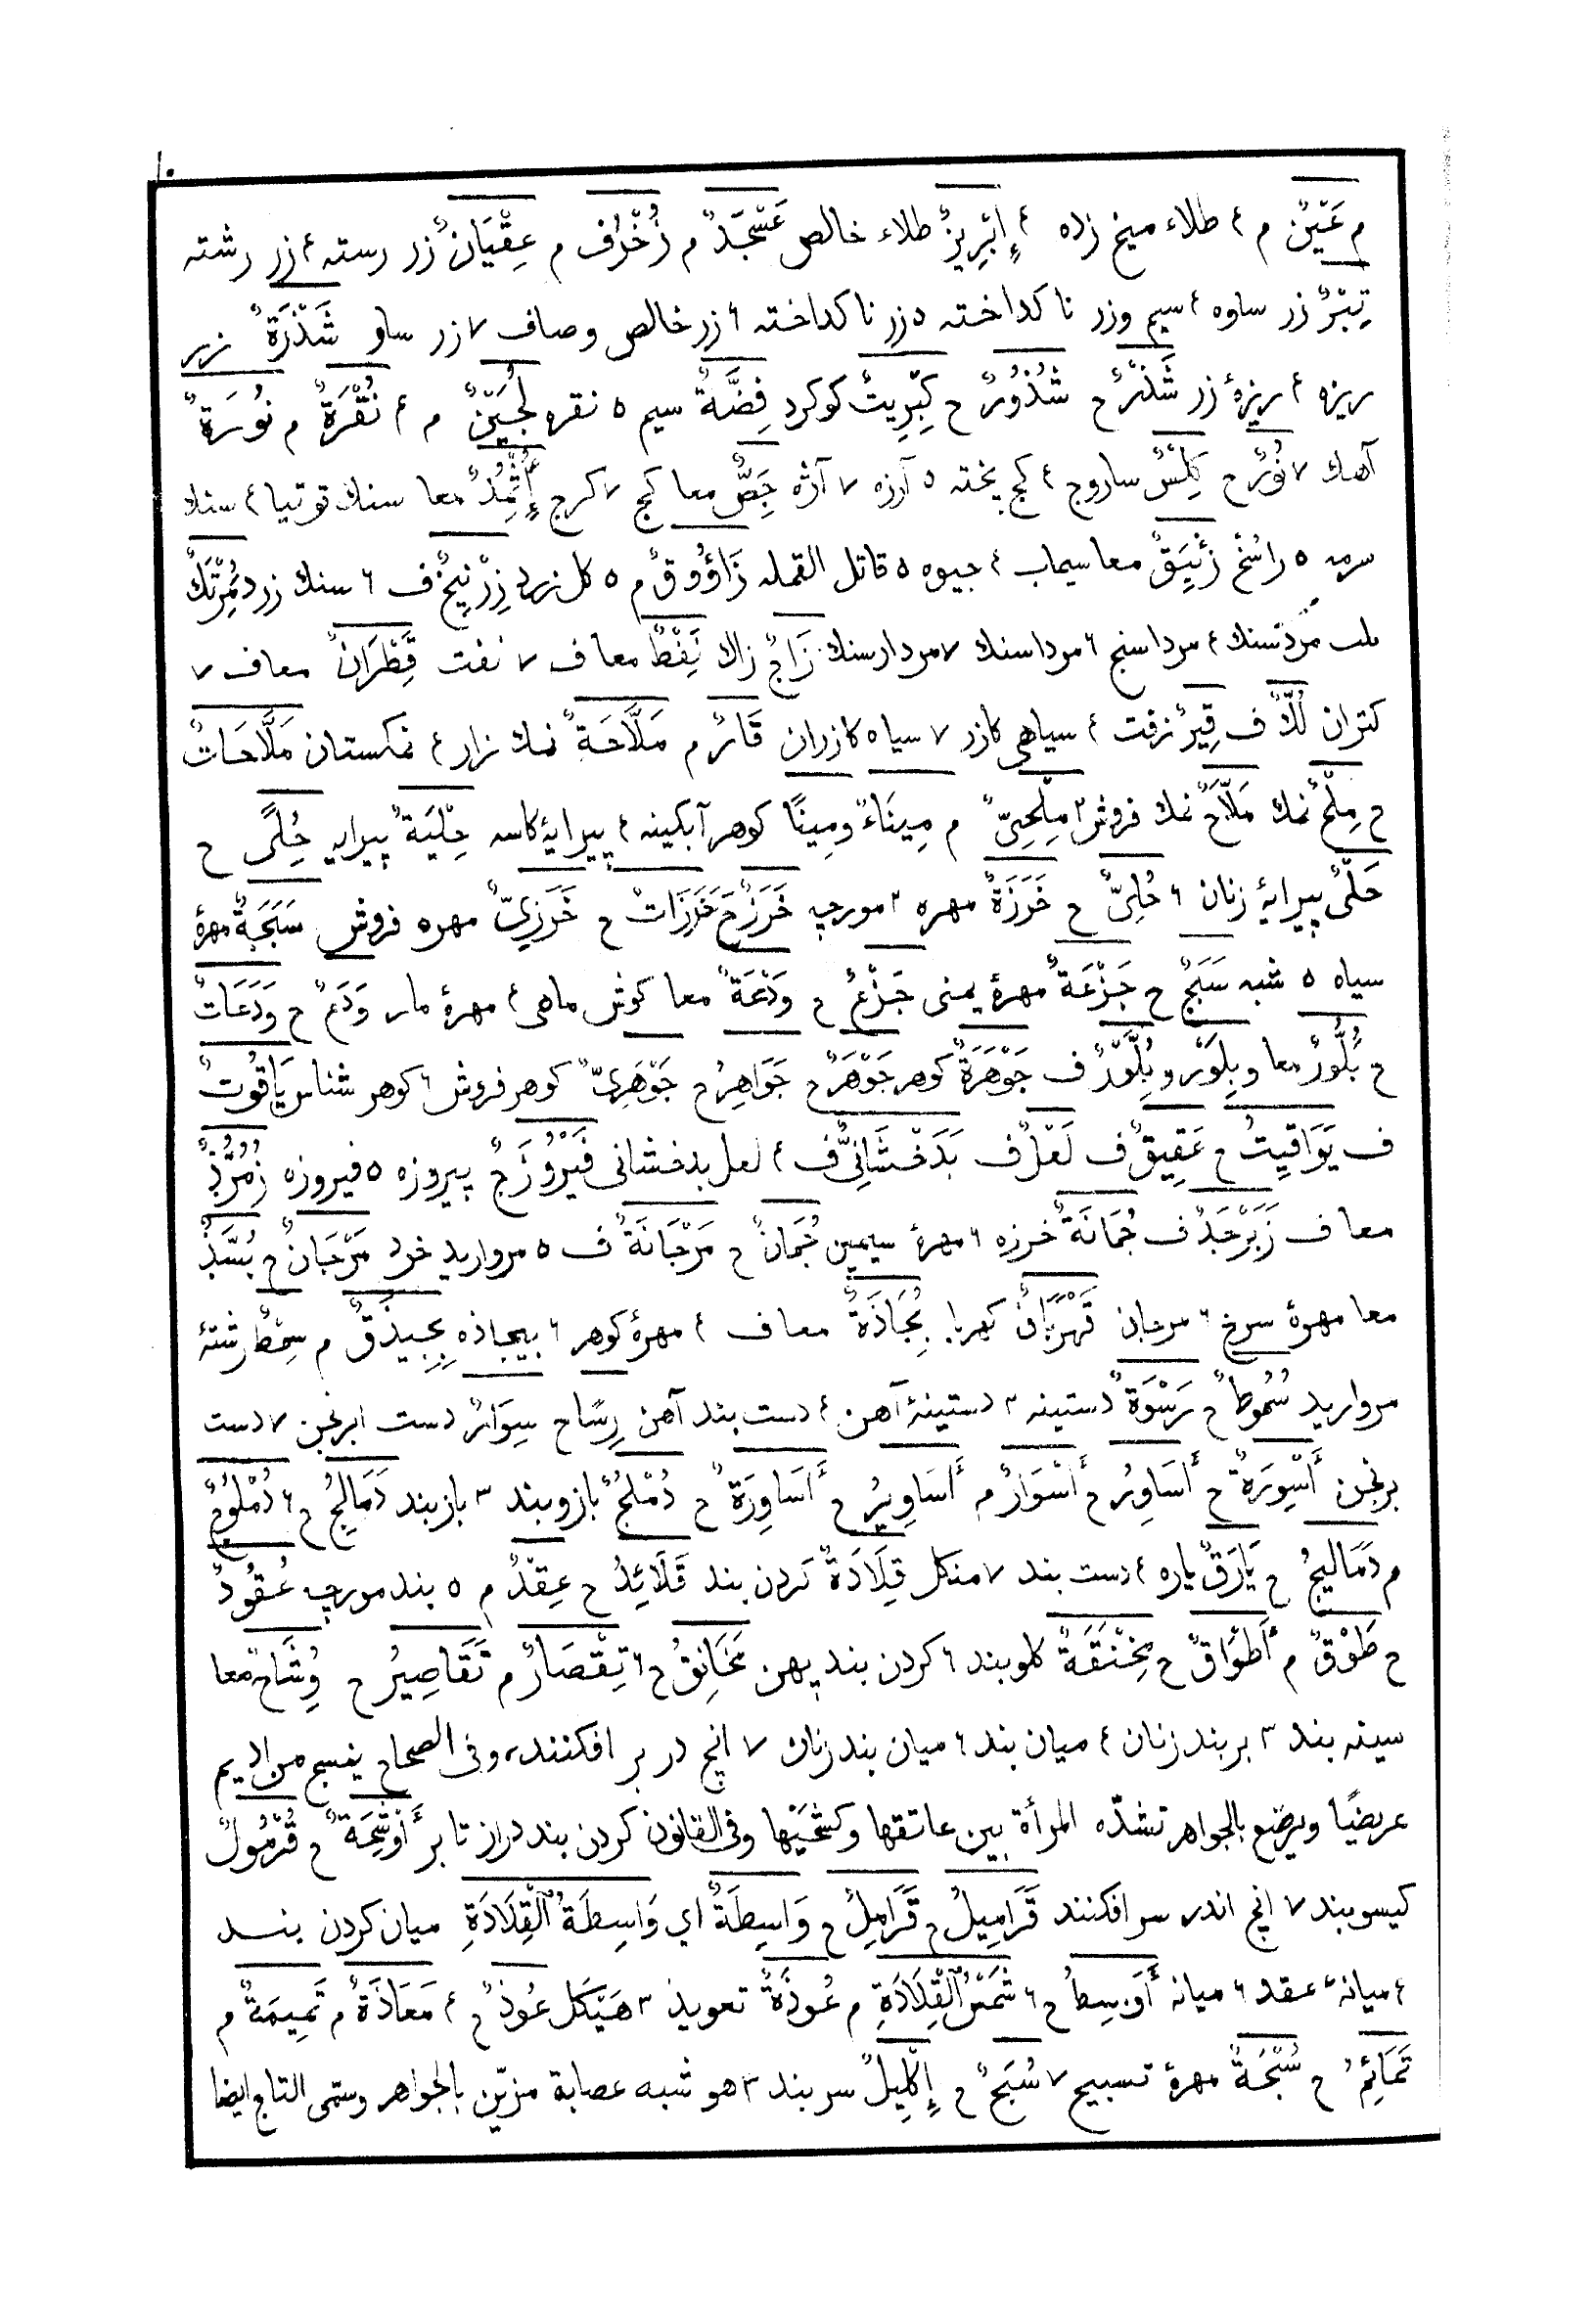 ١٠
م عَيْنٌ م ۴ طلاء میخ زده ۴ إِبْرِيزٌ طلاء خالص عَسْجَدٌ م زُخْرُف م عِقْيَانٌ زر رسته ۴ زر رشته
تِبْرٌ زر ساوه ۴ سیم وزر نا کداخته ۵ زر نا کداخته ۶ زر خالص وصاف ۷ زر ساو شَذْرَةٌ زر
ریزه ۴ ریزهٔ زر شَذْرٌ ح شُذُورٌ ح كِبْرِيتٌ کوکرد فِضَّةٌ سیم ۵ نقره لُجَيْنٌ م ۴ نُقْرَةٌ م نُورَةٌ
آهك ۷ نُورٌ ح كِلْسٌ ساروج ۴ کج پخته ۵ آرزه ۷ آژه جِصٌّ معا کج ۷ کرج إُثْمِدٌ معا سنك توتیا ۴ سنك
سرمه ۵ راسُخ زِئْبَقٌ معا سیماب ۴ جیوه ۵ قاتل القمله زَاؤُوقٌ م ۵ کل زرد زِرْنِيخٌ ف ۶ سنك زرد مُرْتَكٌ
ملب مُردَسنك ۴ مرداسنج ۶ مرداسنك ۷ مردارسنك زَاجٌ زاك نَفْطٌ معا ف ۷ نفت قَطْرَانٌ معا ف ۷
کتران لُكٌّ ف قِيرٌ زفت ۴ سیاهی کازر ۷ سیاه کازران قَارٌ م مَلَّاحَةٌ نمك زار ۴ نمکستان مَلَّاحَاتٌ
ح مِلْحٌ نمك مَلَّاحٌ نمك فروش ۳ مِلْحِيٌّ م مِينَاءٌ ومِينًا کوهر آبکینه ۴ پیرایهٔ کاسه حِلْيَةٌ پیرایه حُلًى ح
حَلْيٌ پیرایهٔ زنان ۶ حُلِيٌّ ح خَرَزَةٌ مهره ۳ مورچه خَرَزٌ ح خَرَزَاتٌ ح خَرَزِيٌّ مهره فروش سَبَجَةٌ مهرهٔ
سیاه ۵ شبه سَبَجٌ ح جَزْعَةٌ مهرهٔ یمنی جَزْعٌ ح وَدْعَةٌ معا کوش ماهی ۴ مهرهٔ مار وَدَعٌ ح وَدَعَاتٌ
ح بُلُّورٌ معا وبِلَوْر وبِلَّوْرٌ ف جَوْهَرَةٌ کوهر جَوْهَرٌ ح جَوَاهِرُ ح جَوْهَرِيٌّ کوهر فروش ۶ کوهر شناس يَاقُوتٌ
ف يَوَاقِيتُ ح عَقِيقٌ ف لَعْلٌ ف بَدَخْشَانِيٌّ ف ۴ لعل بدخشانی فَيْرُوزَجٌ پیروزه ۵ فیروزه زُمُرُّذٌ
معا ف زَبَرْجَدٌ ف جُمَانَةٌ خرزه ۶ مهرهٔ سیمین جُمَانٌ ح مَرْجَانَةٌ ف ۵ مروارید خرد مَرْجَانٌ ح بُسَّذٌ
معا مهرهٔ سرخ ۶ مرجان قَهْرَبَانٌ کهربا بُجَاذَةٌ معا ف ۴ مهرهٔ کوهر ۶ بیجاذه بِجِيذَقٌ م سِمْطٌ رشتهٔ
مروارید سُمُوطٌ ح رَسْوَةٌ دستینه ۳ دستینهٔ آهن ۴ دست بند آهن رِسًا ح سِوَارٌ دست ابرنجن ۷ دست
برنجن أَسْوِرَةٌ ح أَسَاوِرُ ح أَسْوَارٌ م أَسَاوِيرُ ح أَسَاوِرَةٌ ح دُمْلُجٌ بازوبند ۳ بازبند دَمَالِجُ ح ۶ دُمْلُوجٌ
م دَمَالِيجُ ح يَارَقٌ یاره ۴ دست بند ۷ منکل قِلَادَةٌ کردن بند قَلَائِدُ ح عِقْدٌ م ۵ بند مورچه عُقُودٌ
ح طَوْقٌ م أَطْوَاقٌ ح مِخْنَقَةٌ کلوبند ۶ کردن بند پهن مَخَانِقُ ح ۶ تِقْصَارٌ م تَقَاصِيرُ ح وُشَاحٌ معا
سینه بند ۳ بربند زنان ۴ میان بند ۶ میان بند زنان ۷ انچ در بر افکنند وفی الصحاح ینسج من ادیم
عریضًا ویرضع بالجواهر تشدّه المرأة بین عاتقها وکشحَیْها وفی القانون کردن بند دراز تا بر أَوْشِحَةٌ ح قُرْمُولٌ
کیسوبند ۷ انچ اندر سر افکنند قَرَامِيلُ ح قَرَامِلُ ح وَاسِطَةٌ اي وَاسِطَةُ الْقِلَادَةِ میان کردن بند
۴ میانهٔ عقد ۶ میانه أَوَسِطُ ح ۶ شَمْسُ الْقِلَادَةِ م عُوذَةٌ تعوید ۳ هَیْکَل عُوَذٌ ح ۴ مَعَاذَةٌ م تَمِيمَةٌ م
تَمَائِمُ ح سُبْحَةٌ مهرهٔ تسبیح ۷ سُبَحٌ ح إِكْلِيلٌ سربند ۳ هو شبه عصابة مزیّن بالجواهر وسمّی التاج ایضا